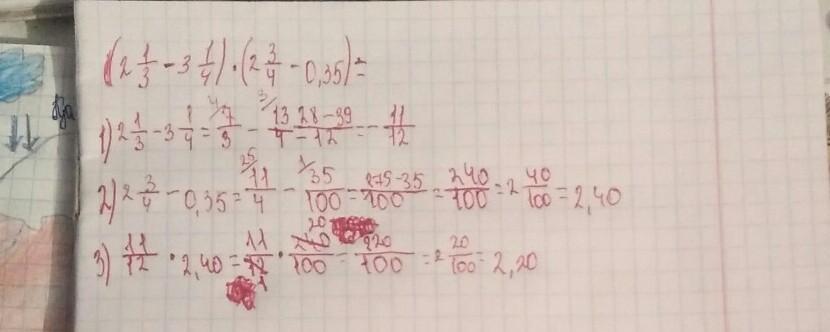 (2 1/3 - 3 1/4) · (2 3/4 - 0,35) =
1) 2 1/3 - 3 1/4 = 4/ 7/3 - 3/ 13/4 = 28-39/12 = - 11/12
2) 2 3/4 - 0,35 = 25/ 11/4 - 1/ 35/100 = 275-35/100 = 240/100 = 2 40/100 = 2,40
3) 11/12 · 2,40 = 11/12 1 · 240/100 20 = 220/100 = 2 20/100 = 2,20